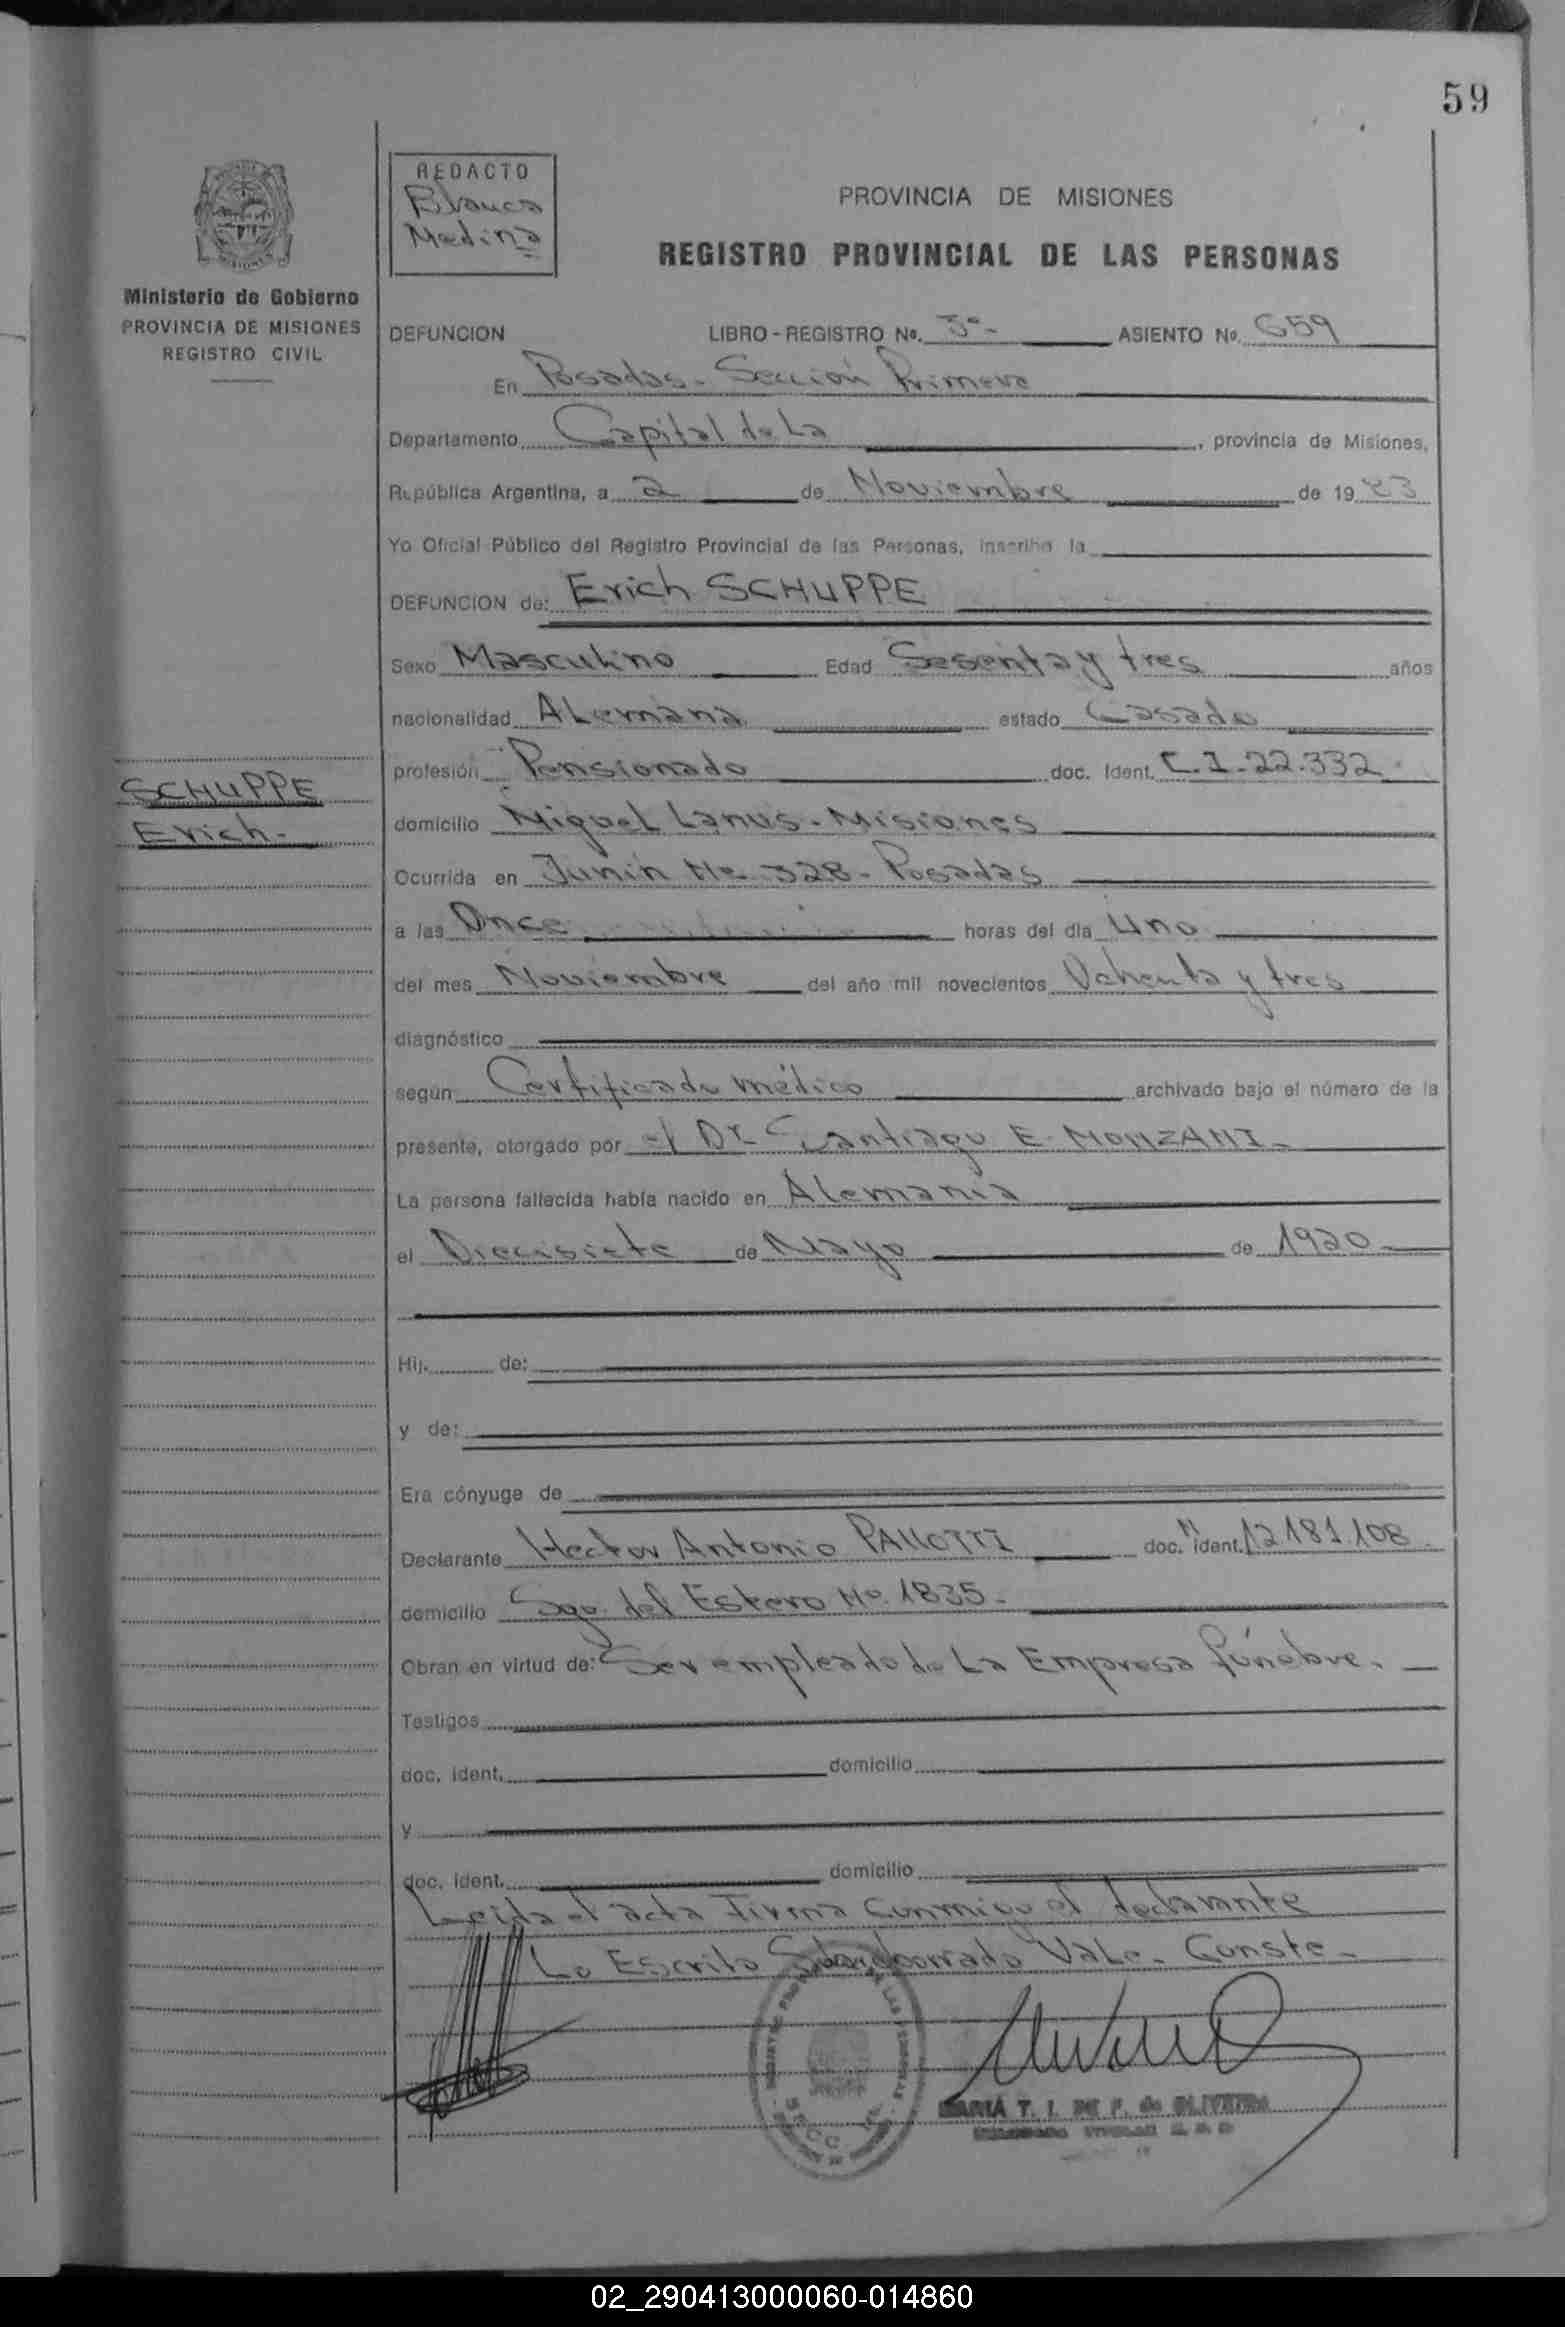 59
REDACTO
Blanca
Medina
PROVINCIA DE MISIONES
REGISTRO PROVINCIAL DE LAS PERSONAS
Ministerio de Gobierno
PROVINCIA DE MISIONES
REGISTRO CIVIL
DEFUNCION LIBRO - REGISTRO No. 3º- ASIENTO No. 659
En Posadas - Sección Primera
Departamento Capital de La, provincia de Misiones,
República Argentina, a 2 de Noviembre de 19 83
Yo Oficial Público del Registro Provincial de las Personas, inscribo la
DEFUNCION de: Erich SCHUPPE
Sexo Masculino Edad Sesenta y tres años
nacionalidad Alemana estado Casado
profesión Pensionado doc. Ident. C.I-22.332
SCHUPPE
Erich-
domicilio Miguel Lanus - Misiones
Ocurrida en Junin No 328 - Posadas
a las Once horas del día Uno
del mes Noviembre del año mil novecientos Ochenta y tres
diagnóstico
según Certificado médico archivado bajo el número de la
presente, otorgado por el Dr. Santiago E. MONZANI-
La persona fallecida había nacido en Alemania
el Diecisiete de Mayo de 1920
Hij. de:
y de:
Era cónyuge de
Declarante Hector Antonio PALLOTTI doc. ident. N 12.181.108
domicilio Sgo. del Estero No. 1835.-
Obran en virtud de: Ser empleado de La Empresa fúnebre.
Testigos
doc. ident. domicilio
y
doc. ident. domicilio
Leida el acta Firma Conmigo el declarante
Lo Escrito Sobreborrado Vale - Conste-
SECC. 1ra
MARIA T. I. DE F. de OLIVEIRA
02_290413000060-014860